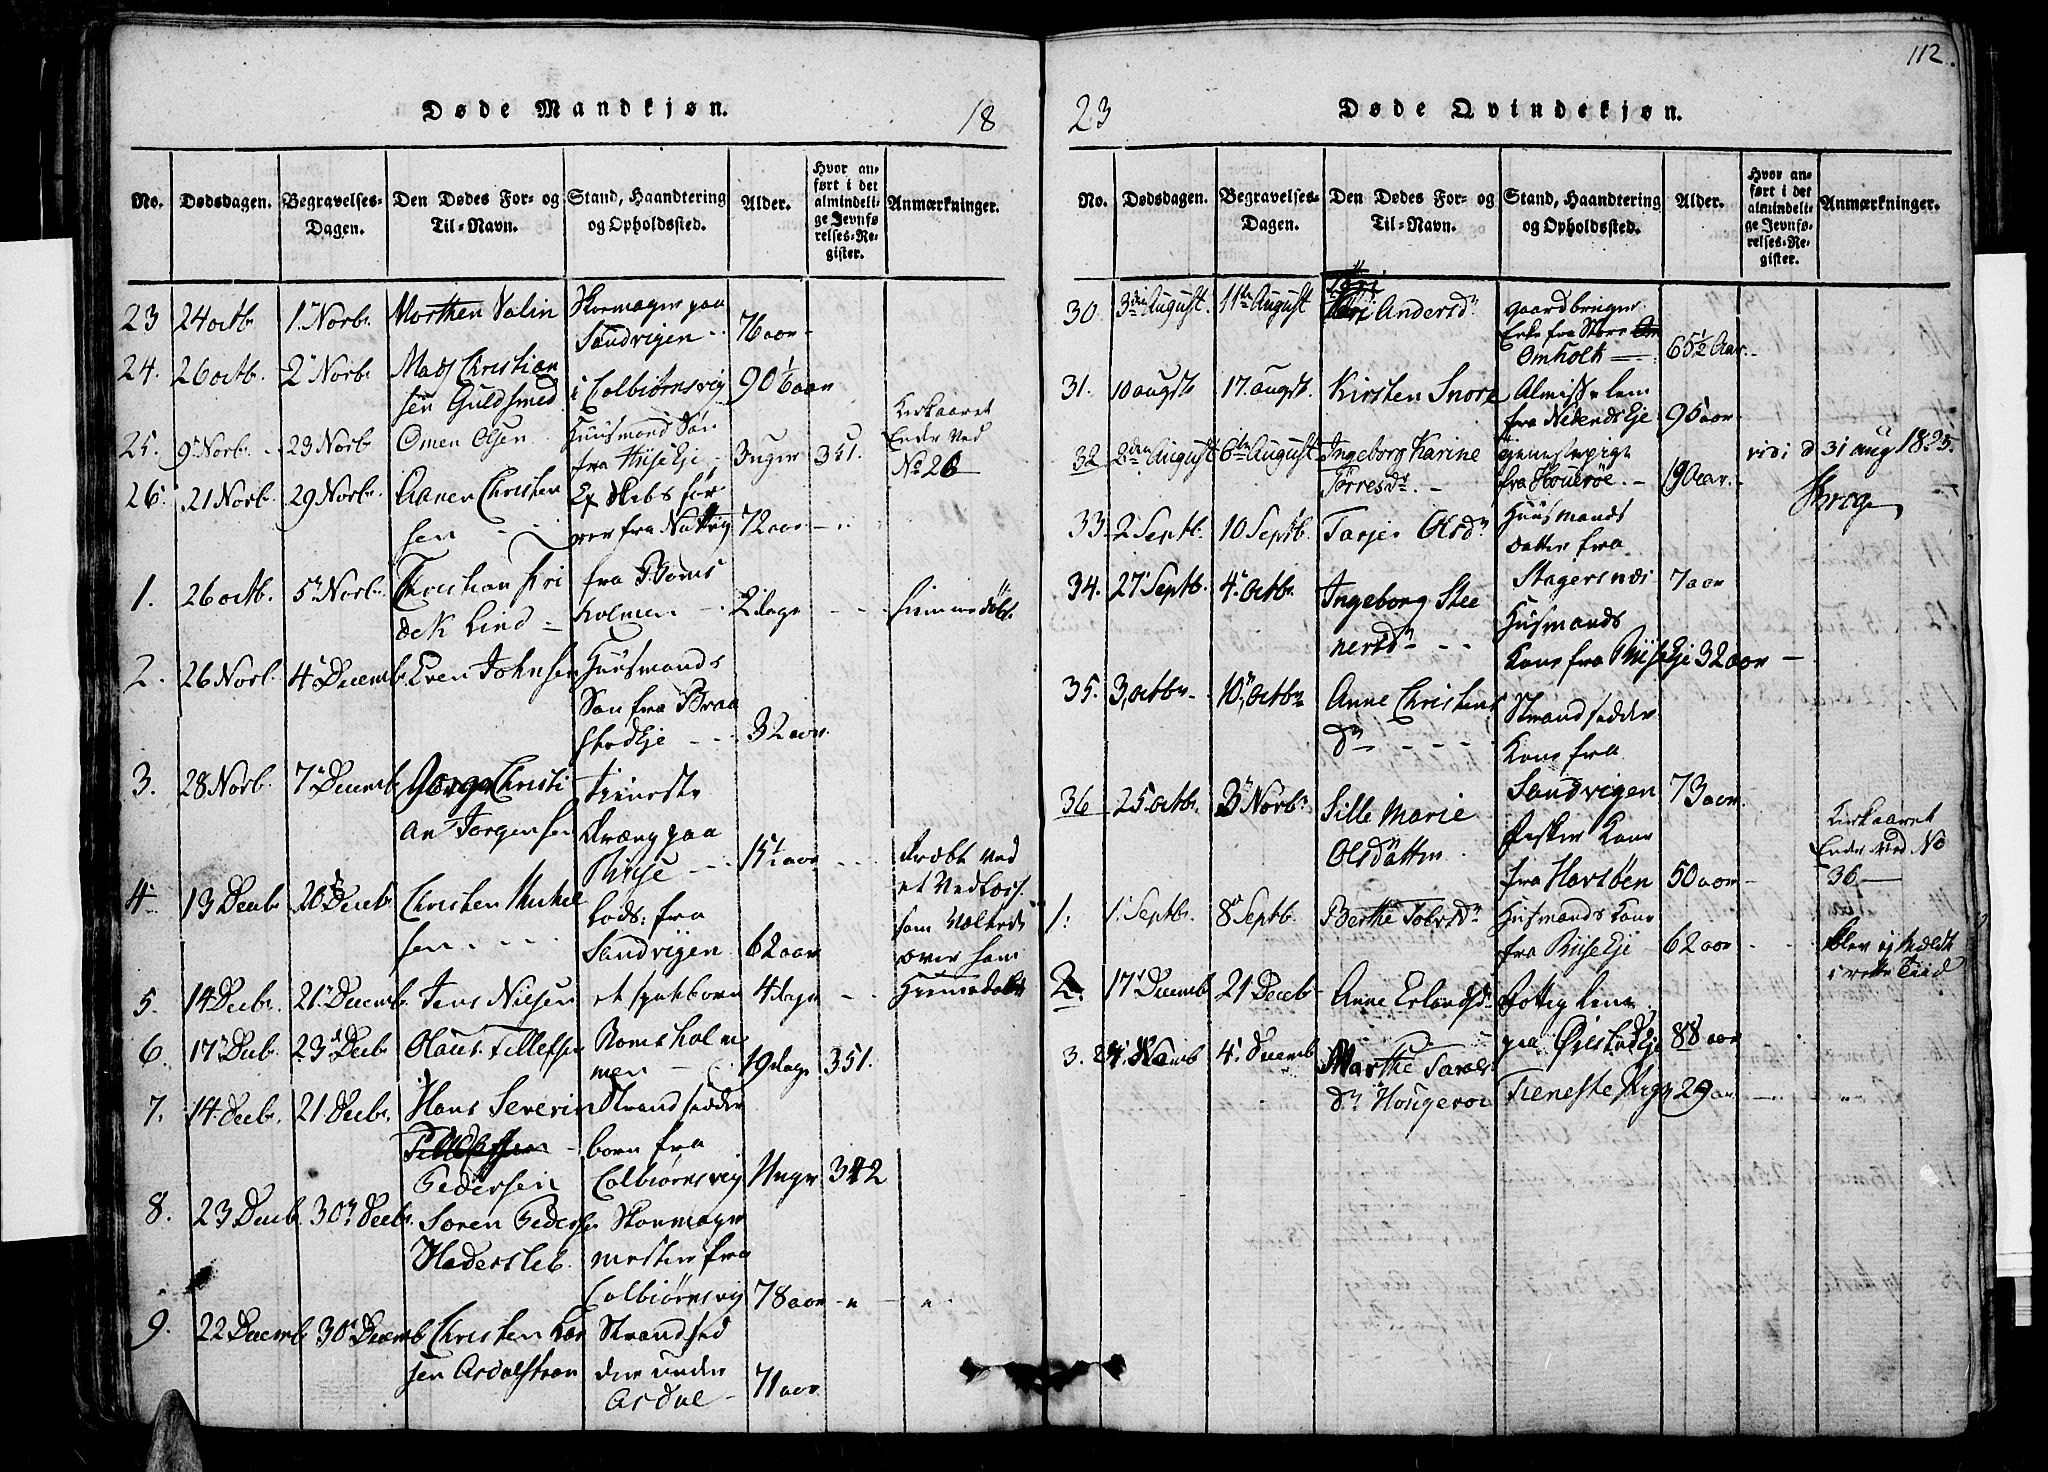 112.
Døde Mandkjøn. 18
No. Dødsdagen. Begravelses-Dagen. Den Dødes For- og Til-Navn. Stand, Haandtering og Opholdssted. Alder. Hvor anført i det almindelige Jevnførelses-Register. Anmærkninger.
23 24 octb. 1. Novb. Morthen Valin Skoemager paa
Sandvigen 76 aar
24. 26 octb. 2 Novb. Mads Christian
sen Guldsmed i Colbiørnsvig 90 1/6 aar
25. 9 Novb. 23 Novb Omen Olsen Huusmand Søn
fra Hiise Eje 3 uger 351. Kirkaaret
Ender Ved
No 26
26. 21 Novb. 29 Novb. Aanen Christen
sen Ex Skibs før
rer fra Natvig 72 aar
1. 26 octb. 5 Novb. Christian Fri
derk Lind fra Boms
holmen 2 dage hiemmedøbt.
2. 26 Novb. 4 Decemb. Even Johnsen Huusmands
Søn fra Braa
stad Eje 32 aar.
3. 28 Novb. 7 Decemb Christi
an Jørgensen tieneste
Dræng paa
Riise 15 1/2 aar Dræbt ved
et Vedlass
som Væltede
over ham
4 13 Decb 20 Decb. Christen Michel
sen Lods: fra
Sandvigen 62 aar
5. 14 Decb. 21 Decemb. Jens Nielsen et spædbarn 4 dage Hiemedøbt
6. 17 Decb. 23 Decb Olaus Tellefsen Bomsholm
men 19 dage 351.
7. 14 Decb. 21 Decb. Hans Severin
Pedersen Strandsidder
barn fra
Colbiørnsvig 4 uger 342
8. 23 Decemb. 30 Decb. Søren Peders
Hadersleb. Skoemager
mester fra
Colbiørnsvig 78 aar
9. 22 Decemb. 30 Decemb. Christen Lar
sen Asdalstran Strandsid
der under
Asdal 71 aar
23 Døde Qvindekjøn.
No. Dødsdagen. Begravelses-Dagen. Den Dødes For- og Til-Navn. Stand, Haandtering og Opholdssted. Alder. Hvor anført i det almindelige Jevnførelses-Register. Anmærkninger.
30 3die August. 11te August Andersdr gaardbruger
Enke fra Store
Omholt 65 1/2 Aar.
31. 10 augst. 17 augst. Kirsten Snore Almisse lem
fra Nedends Eje 95 aar
32 2den August 6te August Ingeborg Karine
Torresdr. tienestepige
fra Houerøe. 19 Aar. vidi d 31 aug 1823.
Krog
33 2 Septb. 10 Septb. Tarjer Olsdr Huusmands
datter fra
Stagersnæs 7 aar
34. 27 Septb. 4 Octb. Ingeborg Stee
nersdr Husmands
Kone fra Riise Eje 32 aar
35. 3 octbr. 10 octbr Anne Christens
dr Strandsidder
Kone fra
Sandvigen 73 aar.
36 25 octb. 3 Novbr Sille Marie
Olsdatter Fisker Kone
fra Havsøen 50 aar Kirkaaret
Ender med No
36
1. 1. Septb. 8 Septb. Berthe Tolvsdr Husmands Kone
fra Riise Eje 62 aar blev ej meldt
i rette Tiid
2. 17 Decemb 21 Decb Anne Erlandsdr Fattig Lem
paa Øiestad Eje 88 aar
3. 24 Novemb 4. Decemb Marthe Tarals
dr Hougerøe Tieneste Pige 29 aar